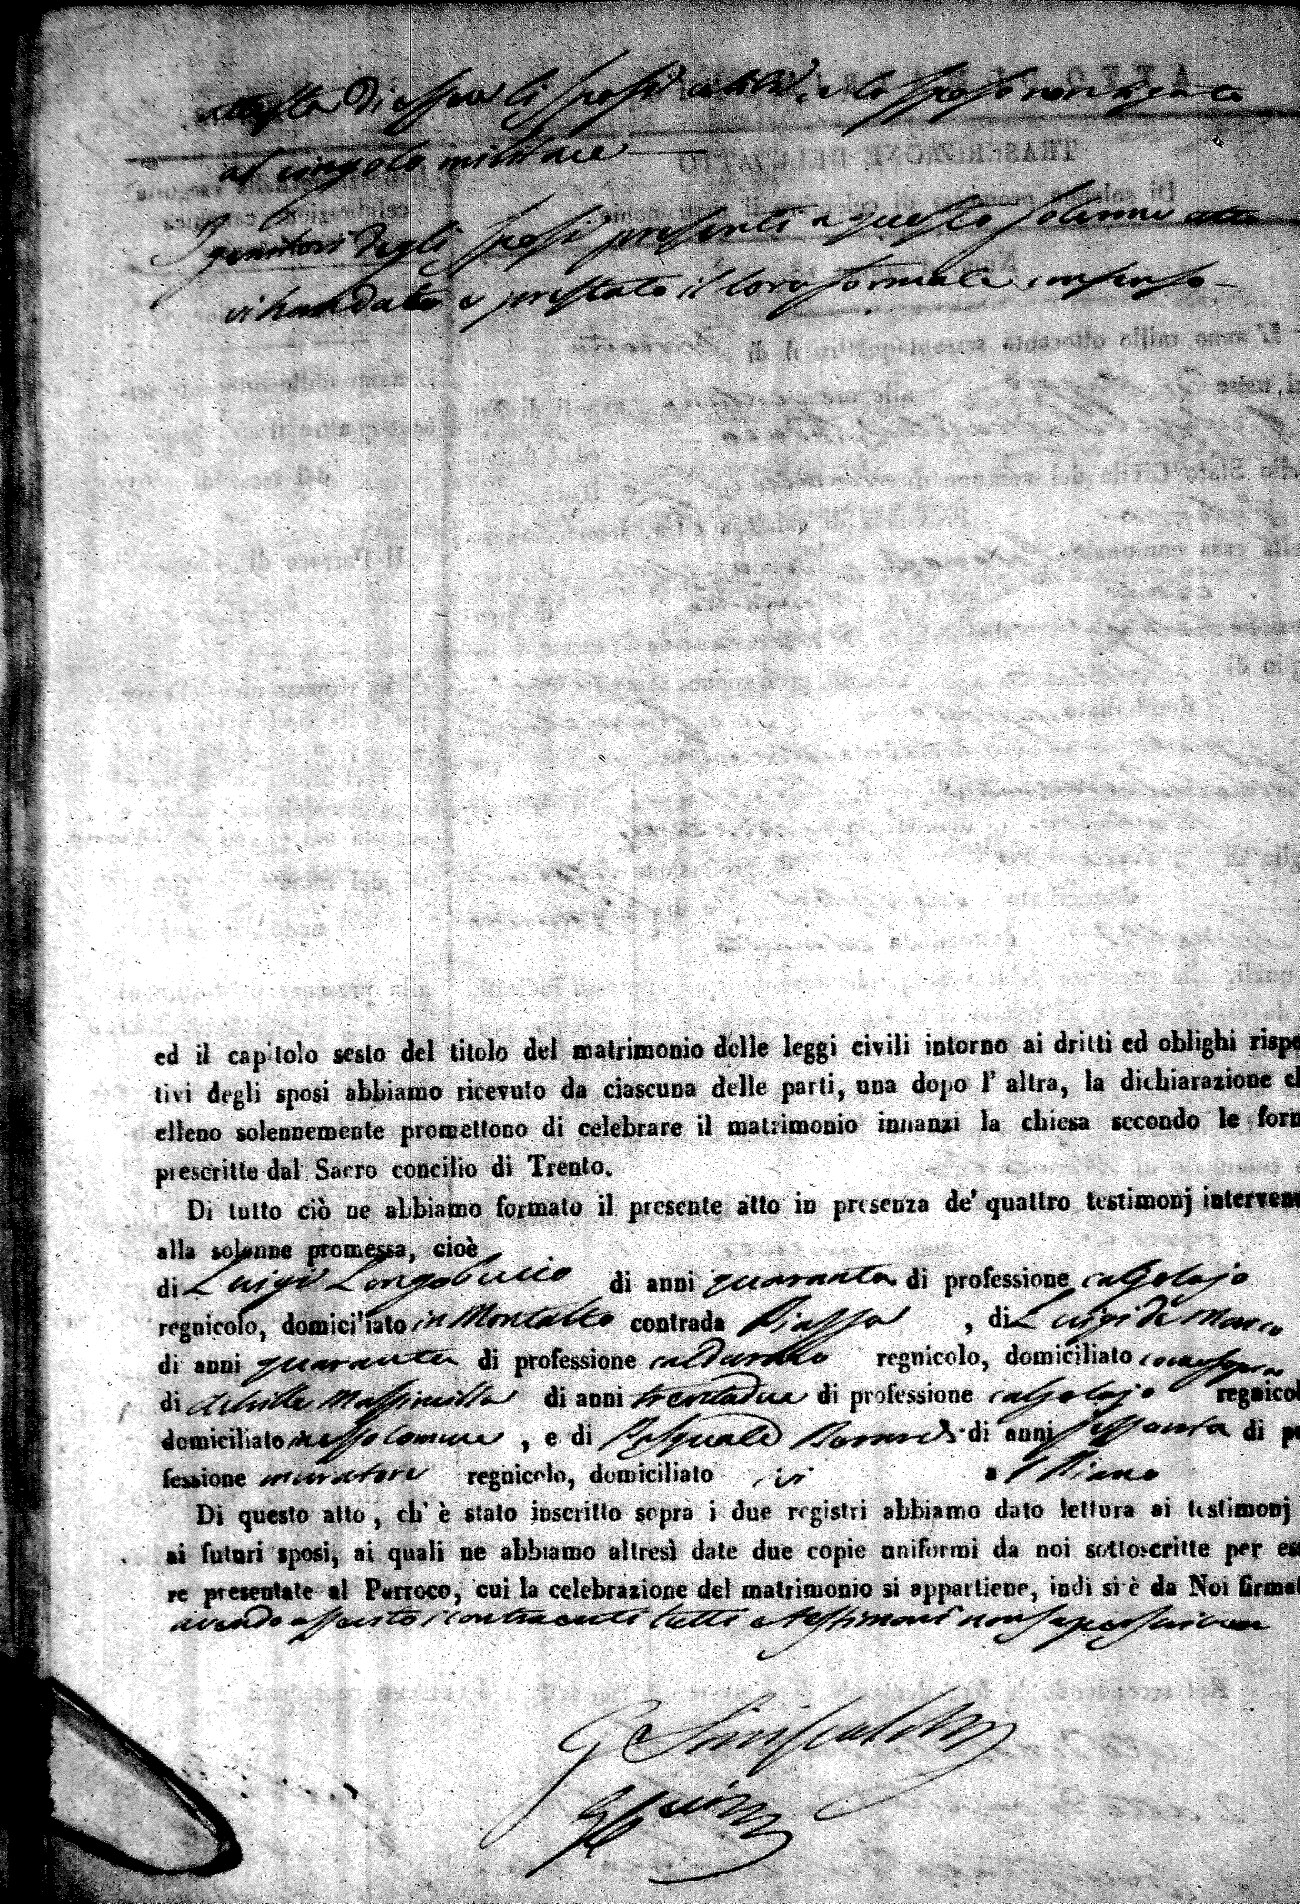 di essere li sposi celibi, e lo sposo non ascritto
al cingolo militare
I genitori degli sposi presenti a questo solenne atto
vi han dato e prestato il loro formale consenso
ed il capitolo sesto del titolo del matrimonio delle leggi civili intorno ai dritti ed oblighi rispe
tivi degli sposi abbiamo ricevuto da ciascuna delle parti, una dopo l' altra, la dichiarazione c
elleno solennemente promettono di celebrare il matrimonio innanzi la chiesa secondo le form
prescritte dal Sacro concilio di Trento.
Di tutto ciò ne abbiamo formato il presente atto in presenza de' quattro testimonj interven
alla solenne promessa, cioè
di Luigi Longobucco di anni quaranta di professione calzolajo
regnicolo, domiciliato in Montalto contrada Piazza , di Luigi de Marco
di anni quaranta di professione regnicolo, domiciliato come sopra
di Achille Massimilla di anni trentadue di professione calzolajo regnicol
domiciliato nesso comune , e di Pasquale di anni sessanta di p
fessione muratore regnicolo, domiciliato ivi
Di questo atto, ch' è stato inscritto sopra i due registri abbiamo dato lettura ai testimonj
ai futuri sposi, ai quali ne abbiamo altresì date due copie uniformi da noi sottoscritte per es
re presentate al Parroco, cui la celebrazione del matrimonio si appartiene, indi si è da Noi firma
avendo asserito i contraenti tutti e testimoni non saper scrivere